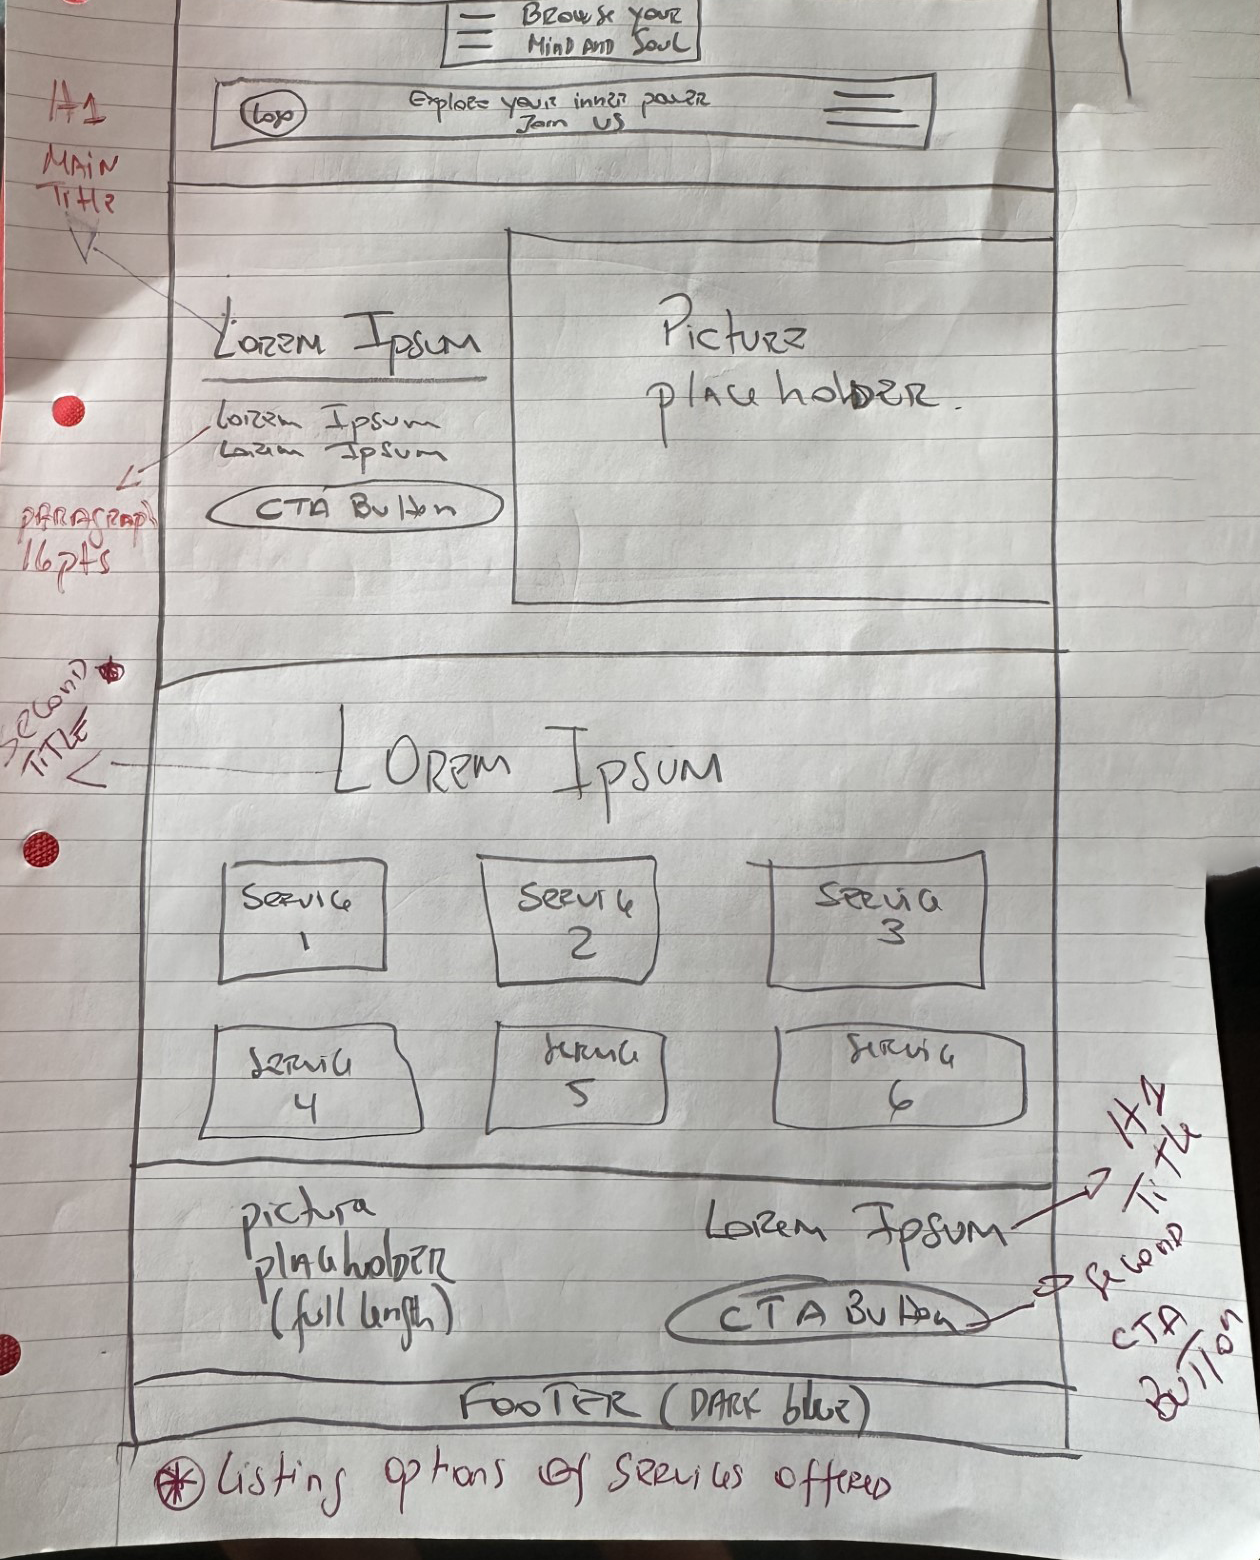 Browse your
Mind and Soul
Logo
Explore your inner power
Join us
H1
Main
Title
Lorem Ipsum
Lorem Ipsum
Lorem Ipsum
CTA Button
Picture
placeholder.
paragraph
16pts
Second
Title
Lorem Ipsum
Service
1
Service
2
Service
3
Service
4
Service
5
Service
6
pictura
placeholder
(full length)
Lorem Ipsum
CTA Button
Title
Second
CTA
Button
Footer (Dark blue)
Listing options of services offered